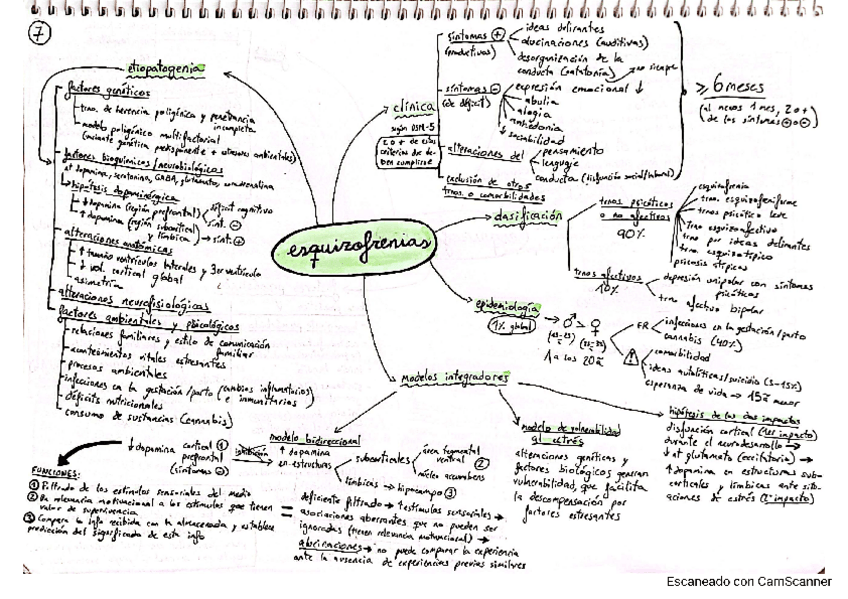 7
esquizofrenias
etiopatogenia
factores genéticos
trno. de herencia poligénica y penetrancia
incompleta
modelo poligénico multifactorial
(variante genética predisponente + estresores ambientales)
factores bioquímicos/neurobiológicos
at dopamina, serotonina, GABA, glutamato, noradrenalina
hipótesis dopaminérgica
↓ dopamina (región prefrontal)
déficit cognitivo
sínt. ⊖
↑ dopamina (región subcortical
y límbica) → sínt. ⊕
alteraciones anatómicas
↑ tamaño ventrículos laterales y 3er ventrículo
↓ vol. cortical global
asimetría
alteraciones neurofisiológicas
factores ambientales y psicológicos
relaciones familiares y estilo de comunicación
familiar
acontecimientos vitales estresantes
procesos ambientales
infecciones en la gestación/parto (cambios inflamatorios
e inmunitarios)
déficits nutricionales
consumo de sustancias (cannabis)
clínica
según DSM-5
2 o + de estos
criterios deben
cumplirse
síntomas ⊕
(productivos)
ideas delirantes
alucinaciones (auditivas)
desorganización de la
conducta (catatonía) → no siempre
síntomas ⊖
(de déficit)
expresión emocional ↓
abulia
alogia
anhedonia
↓ sociabilidad
alteraciones del
pensamiento
lenguaje
conducta (disfunción social/laboral)
exclusión de otros
trnos. o comorbilidades
≥ 6 meses
(al menos 1 mes, 2 o +
de los síntomas ⊕ o ⊖)
clasificación
trnos psicóticos
o no afectivos
90%
esquizofrenia
trno. esquizofreniforme
trno. psicótico breve
trno esquizoafectivo
trno por ideas delirantes
trno. esquizotípico
psicosis atípicas
trnos afectivos
10%
depresión unipolar con síntomas
psicóticos
trno. afectivo bipolar
epidemiología
1% global
→ ♂ > ♀
1 a los 20a
FR
infecciones en la gestación/parto
cannabis (40%)
comorbilidad
ideas autolíticas/suicidio (5-15%)
esperanza de vida → 15a menor
modelos integradores
modelo bidireccional
↓ dopamina
cortical ①
prefrontal
(síntomas ⊖)
inhibición
↑ dopamina
en estructuras
subcorticales
área tegmental
ventral ②
núcleo accumbens
límbicas → hipocampo ③
FUNCIONES:
① Filtrado de los estímulos sensoriales del medio
② Da relevancia motivacional a los estímulos que tienen
valor de supervivencia
③ Compara la info recibida con la almacenada y establece
predicción del significado de esta info
=
deficiente filtrado → ↑ estímulos sensoriales →
asociaciones aberrantes que no pueden ser
ignoradas (tienen relevancia motivacional) →
alucinaciones → no puede comparar la experiencia
ante la ausencia de experiencias previas similares
modelo de vulnerabilidad
al estrés
alteraciones genéticas y
factores biológicos generan
vulnerabilidad, que facilita
la descompensación por
factores estresantes
hipótesis de los dos impactos
disfunción cortical (1er impacto)
durante el neurodesarrollo →
↓ at glutamato (excitatoria) →
↑ dopamina en estructuras sub-
corticales y límbicas ante situ-
aciones de estrés (2º impacto)
Escaneado con CamScanner